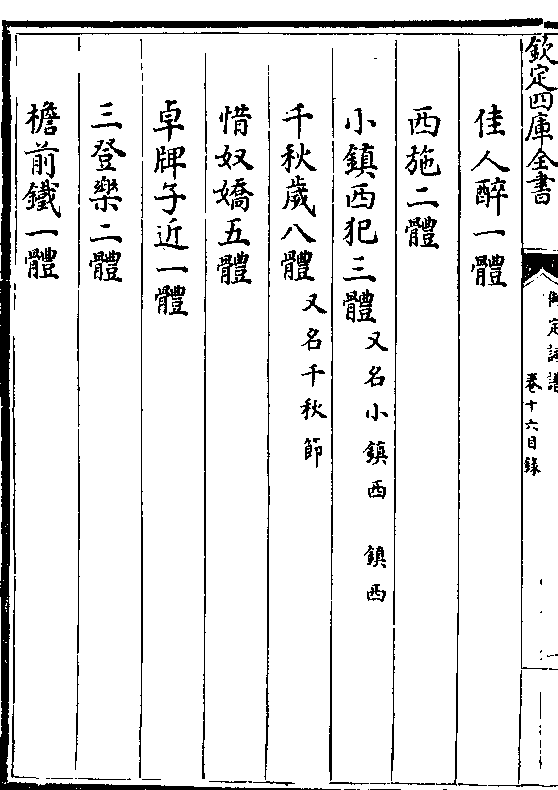 欽定四庫全書
御定詞譜
卷十六目錄
佳人醉一體
西施二體
小鎮西犯三體又名小鎮西 鎮西
千秋歲八體又名千秋節
惜奴嬌五體
卓牌子近一體
三登樂二體
檐前鐵一體